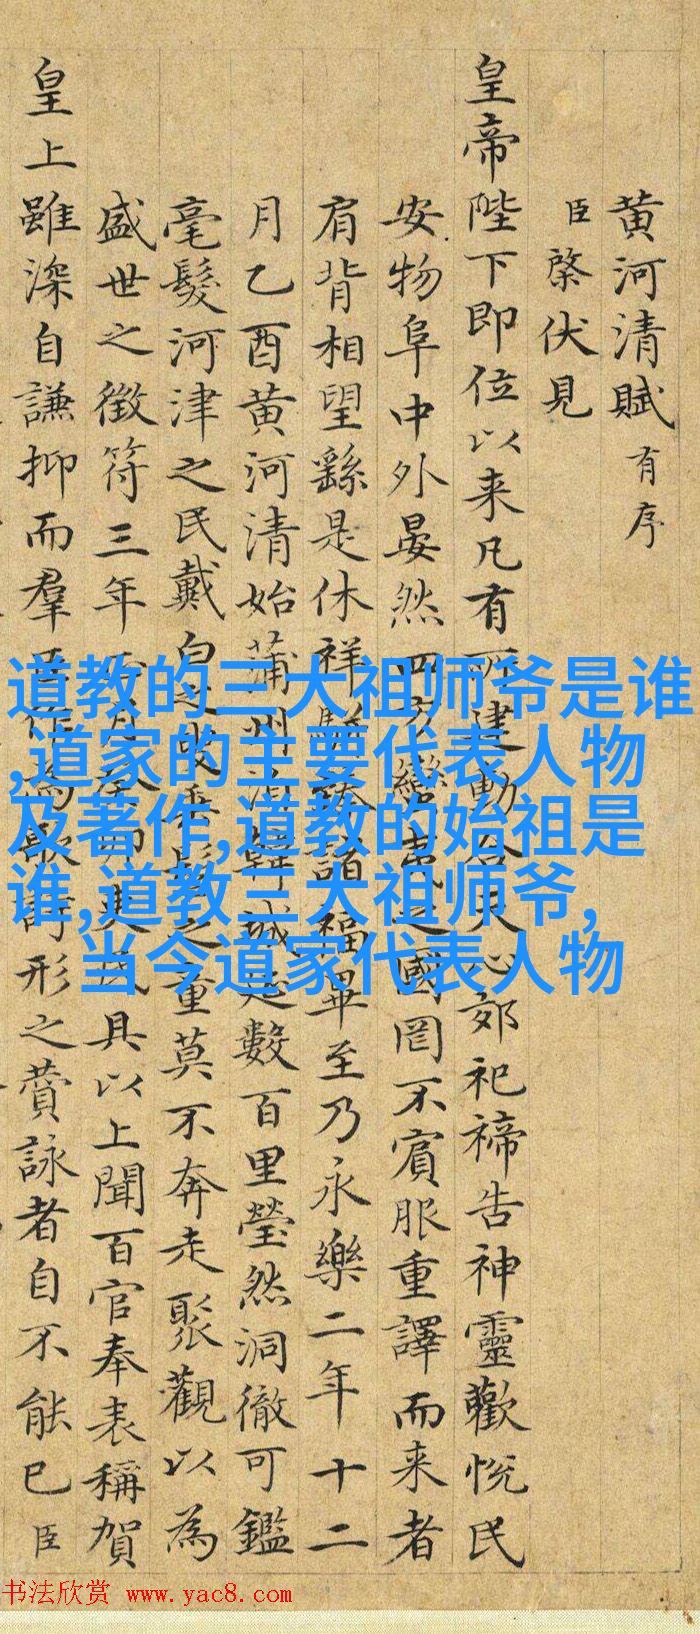 黄河清賦 有序
臣棨伏見
皇帝陛下即位以来凡有所建動合天心郊祀禘告神靈歡悅民
安物阜中外晏然四方蠻夷之國罔不賓服重譯而来者
肩背相望繇是休祥駢臻諸福畢至乃永樂二年十二
月乙酉黄河清始蒲州韓城延數百里瑩然洞徹可鑑
毫髮河津之民戴白之垂髫之童莫不奔走聚觀以為
盛世之徵符三年月具以上聞百官奉表稱賀
皇上雖深自謙抑而羣臣作為歌詩形之賛詠者自不能已臣
道教的三大祖师爷是谁
,道家的主要代表人物
及著作,道教的始祖是
谁,道教三大祖师爷,
当今道家代表人物
书法欣赏 www.yac8.com